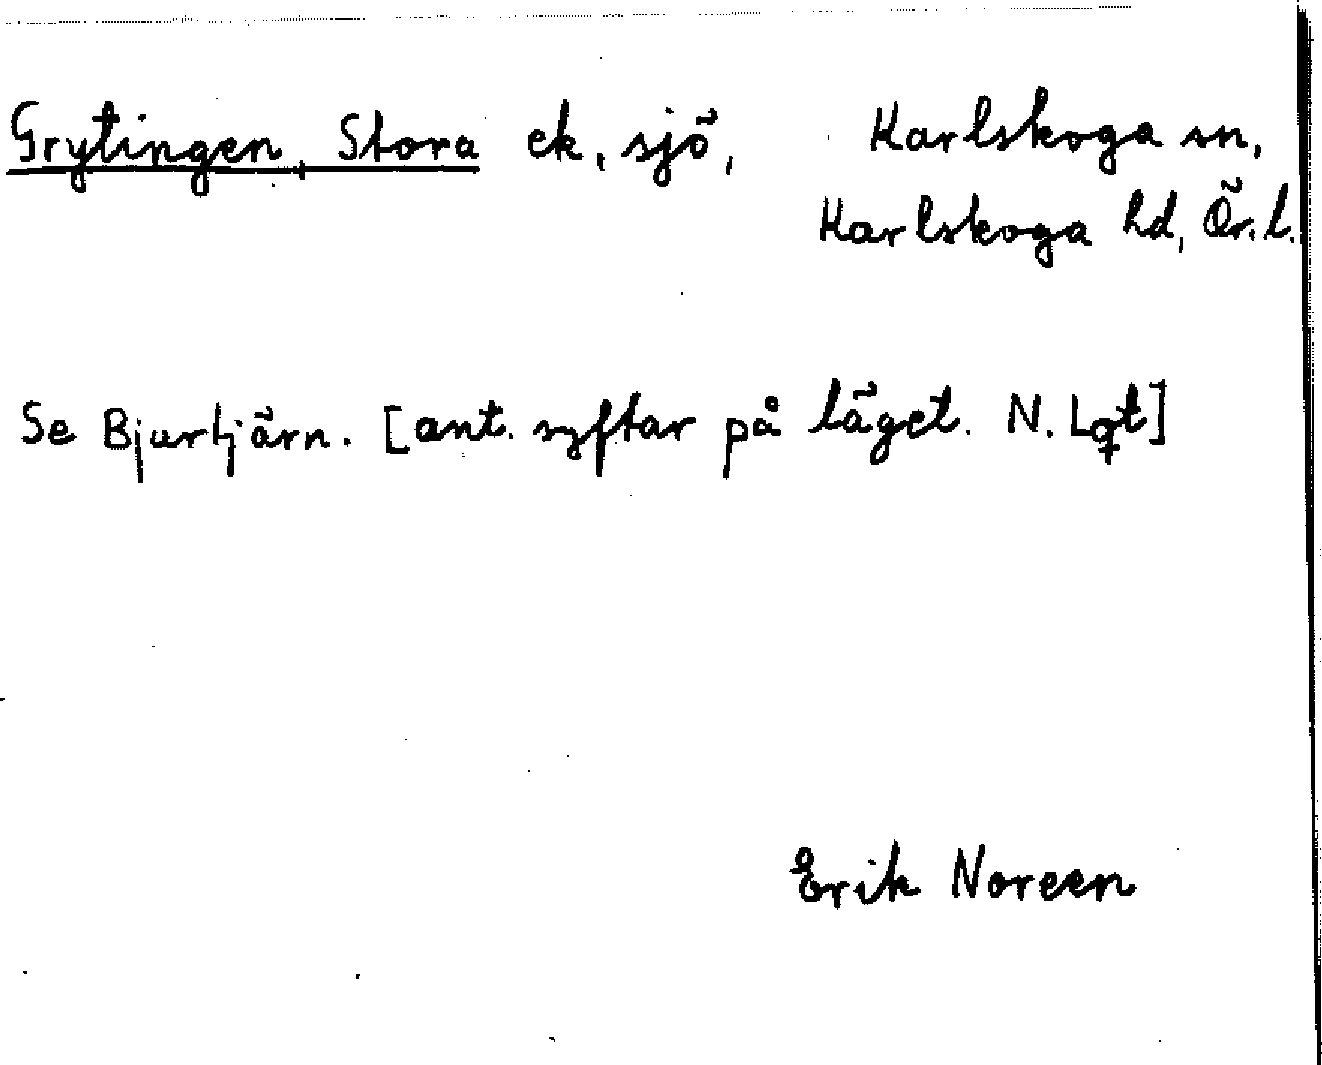 Grytingen, Stora ek, sjö, Karlskoga sn,
Karlskoga hd, Ör. l.
Se Bjurtjärn. [ant. syftar på läget. N. Lqt]
Erik Noreen